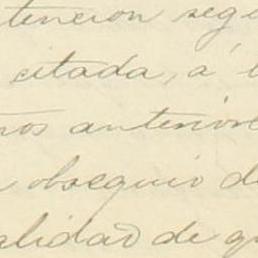 tención segú
citada, á l
ños anterior
obsequio d
alidad de q